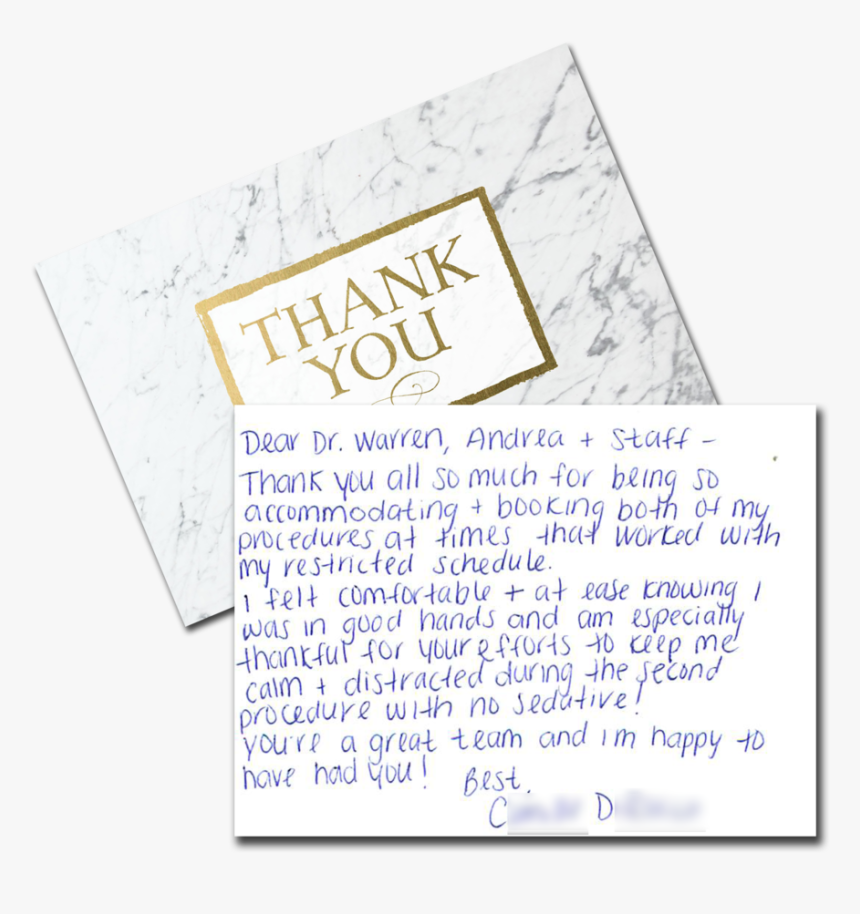 THANK
YOU
Dear Dr. Warren, Andrea + Staff -
Thank you all so much for being so
accommodating + booking both of my
procedures at times that worked with
my restricted schedule.
I felt comfortable + at ease knowing I
was in good hands and am especially
thankful for your efforts to keep me
calm + distracted during the second
procedure with no sedative!
you're a great team and im happy to
have had you!
Best,
C D